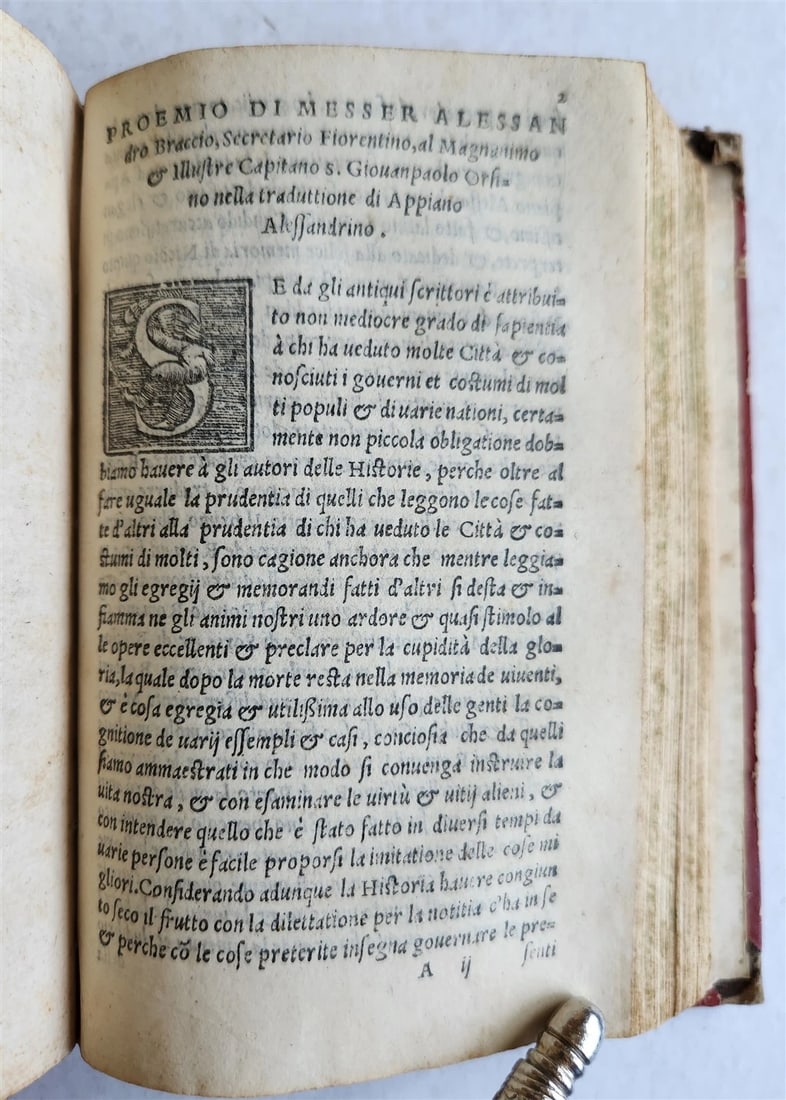 2
PROEMIO DI MESSER ALESSAN
dro Braccio, Secretario Fiorentino, al Magnanimo
& Illustre Capitano s. Giouanpaolo Orsi=
no nella traduttione di Appiano
Alessandrino.
SE da gli antiqui scrittori è attribui=
to non mediocre grado di sapientia
à chi ha ueduto molte Città & co=
nosciuti i gouerni et costumi di mol
ti populi & di uarie nationi, certa=
mente non piccola obligatione dob=
biamo hauere à gli autori delle Historie, perche oltre al
fare uguale la prudentia di quelli che leggono le cose fat=
te d'altri alla prudentia di chi ha ueduto le Città & co=
stumi di molti, sono cagione anchora che mentre leggia=
mo gli egregij & memorandi fatti d'altri si desta & in=
fiamma ne gli animi nostri uno ardore & quasi stimolo al
le opere eccellenti & preclare per la cupidità della glo=
ria, la quale dopo la morte resta nella memoria de uiuenti,
& è cosa egregia & utilißima allo uso delle genti la co=
gnitione de uarij essempli & casi, conciosia che da quelli
siamo ammaestrati in che modo si conuenga instruire la
uita nostra, & con esaminare le uirtù & uitij alieni, &
con intendere quello che è stato fatto in diuersi tempi da
uarie persone è facile proporsi la imitatione delle cose mi
gliori. Considerando adunque la Historia hauere congiun
to seco il frutto con la dilettatione per la notitia c'ha in se
& perche cō le cose preterite insegna gouernare le pre=
A ij senti